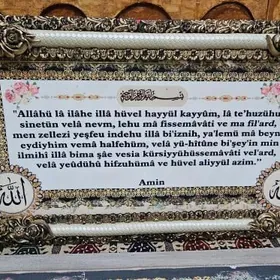 بسم الله الرحمن الرحيم
"Allâhü lâ ilâhe illâ hüvel hayyül kayyûm, lâ te'huzühu
sinetün velâ nevm, lehu mâ fissemâvâti ve ma fil'ard,
men zellezi yeşfeu indehu illâ bi'iznih, ya'lemü mâ beyn
eydiyhim vemâ halfehüm, velâ yü-hîtûne bi'şey'in min
ilmihî illâ bima şâe vesia kürsiyyühüssemâvâti vel'ard,
velâ yeûdühû hifzuhümâ ve hüvel aliyyül azim."
Amin
الله
الله